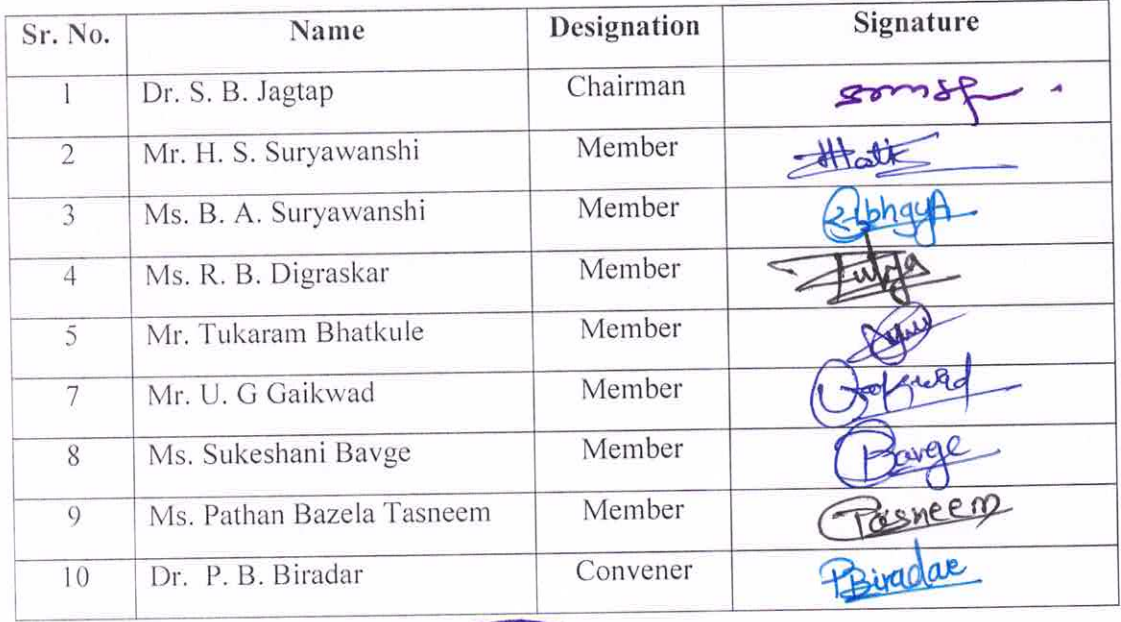 Sr. No. Name Designation Signature
1 Dr. S. B. Jagtap Chairman
2 Mr. H. S. Suryawanshi Member
3 Ms. B. A. Suryawanshi Member
4 Ms. R. B. Digraskar Member
5 Mr. Tukaram Bhatkule Member
7 Mr. U. G Gaikwad Member
8 Ms. Sukeshani Bavge Member Bavge
9 Ms. Pathan Bazela Tasneem Member Tasneem
10 Dr. P. B. Biradar Convener PBiradar